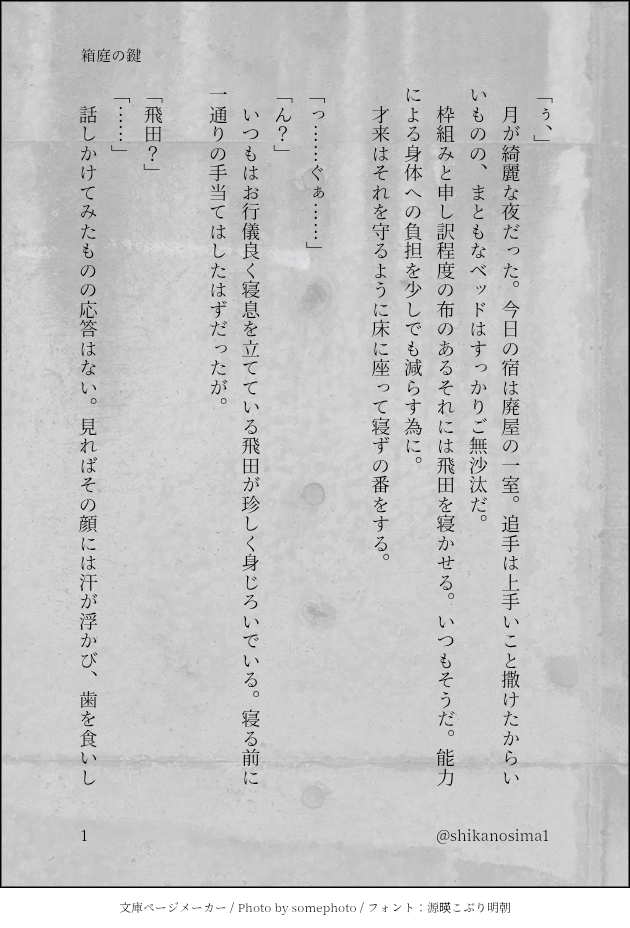 箱庭の鍵
「ぅ、」
　月が綺麗な夜だった。今日の宿は廃屋の一室。追手は上手いこと撒けたからい
いものの、まともなベッドはすっかりご無沙汰だ。
　枠組みと申し訳程度の布のあるそれには飛田を寝かせる。いつもそうだ。能力
による身体への負担を少しでも減らす為に。
　才来はそれを守るように床に座って寝ずの番をする。
「っ……ぐぁ……」
「ん？」
　いつもはお行儀良く寝息を立てている飛田が珍しく身じろいでいる。寝る前に
一通りの手当てはしたはずだったが。
「飛田？」
「……」
　話しかけてみたものの応答はない。見ればその顔には汗が浮かび、歯を食いし
1
@shikanosima1
文庫ページメーカー / Photo by somephoto / フォント：源暎こぶり明朝